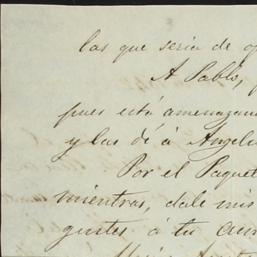 las que seria de
A Pablo,
pues está amenazan
y las dé á Angeli
Por el Paquet
mientras, dale mis
gustes á tu